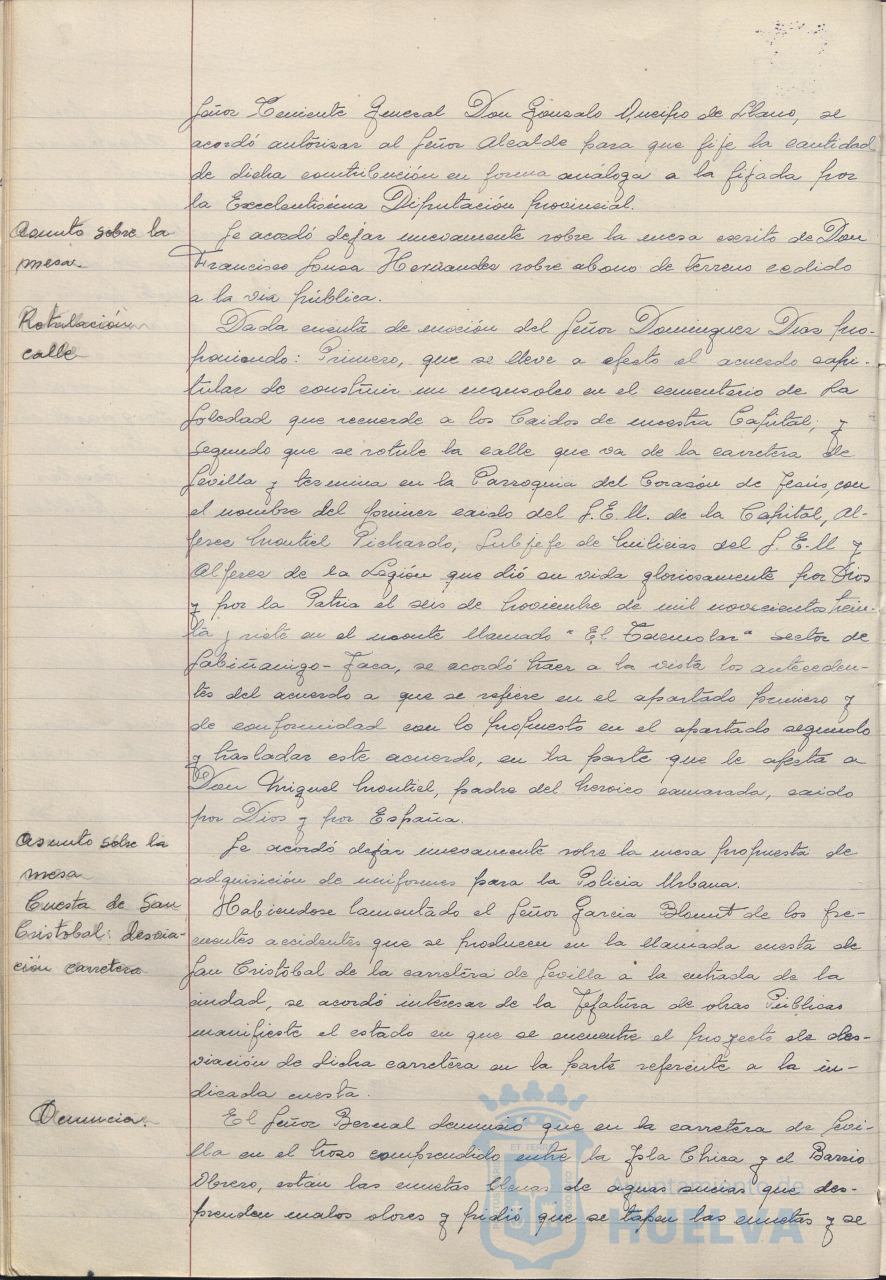 Señor Teniente General Don Gonzalo Queipo de Llano, se
acordó autorizar al Señor Alcalde para que fije la cantidad
de dicha contribución en forma análoga a la fijada por
la Excelentísima Diputación provincial.
Asunto sobre la
mesa.
Se acordó dejar nuevamente sobre la mesa escrito de Don
Francisco Sousa Hernandez sobre abono de terreno cedido
a la via pública.
Rotulación
calle
Dada cuenta de moción del Señor Dominguez Dias pro-
poniendo: Primero, que se lleve a efecto el acuerdo capi-
tular de construir un mausoleo en el cementerio de la
Soledad que recuerde a los Caidos de nuestra Capital; y
segundo que se rotule la calle que va de la carretera de
Sevilla y termina en la Parroquia del Corazón de Jesús, con
el nombre del primer caido del S.E.U. de la Capital, Al-
ferez Montiel Pichardo, Subjefe de Milicias del S.E.U y
Alferez de la Legión que dió su vida gloriosamente por Dios
y por la Patria el seis de Noviembre de mil novecientos trein-
ta y siete en el monte llamado "El " sector de
Sabiñanigo-Jaca, se acordó traer a la vista los anteceden-
tes del acuerdo a que se refiere en el apartado primero y
de conformidad con lo propuesto en el apartado segundo
y trasladar este acuerdo, en la parte que le afecta a
Don Miguel Montiel, padre del heroico camarada, caido
por Dios y por España.
Asunto sobre la
mesa
Se acordó dejar nuevamente sobre la mesa propuesta de
adquisición de uniformes para la Policia Urbana.
Cuesta de San
Cristobal: desvia-
ción carretera
Habiendose lamentado el Señor Garcia de los fre-
cuentes accidentes que se producen en la llamada cuesta de
San Cristóbal de la carretera de Sevilla a la entrada de la
ciudad, se acordó interesar de la Jefatura de obras Públicas
manifieste el estado en que se encuentre el proyecto de des-
viación de dicha carretera en la parte referente a la in-
dicada cuesta.
Denuncia.
El Señor Bernal denunció que en la carretera de Sevi-
lla en el trozo comprendido entre la Isla Chica y el Barrio
Obrero, están las cunetas llenas de aguas sucias que des-
prenden malos olores y pidió que se tapen las cunetas y se
Ayuntamiento de
HUELVA